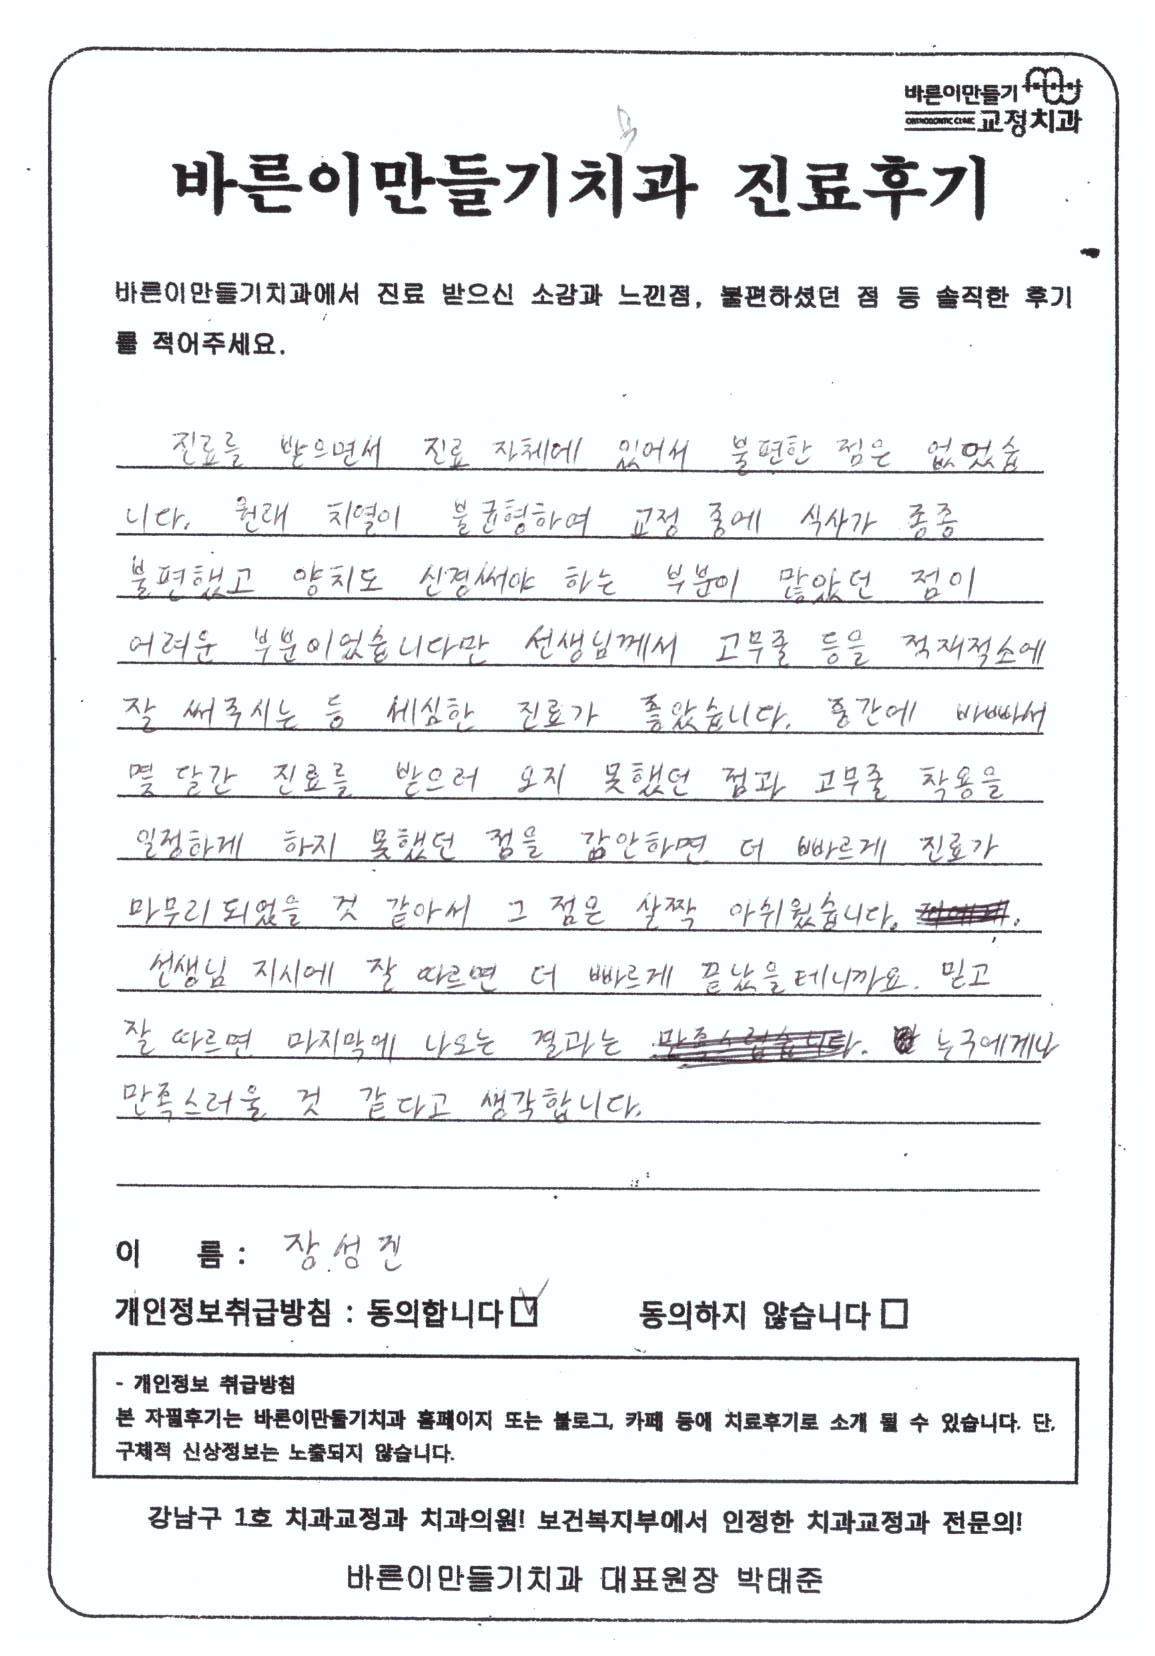 바른이만들기
ORTHODONTIC CLINIC 교정치과
바른이만들기치과 진료후기
바른이만들기치과에서 진료 받으신 소감과 느낀점, 불편하셨던 점 등 솔직한 후기
를 적어주세요.
진료를 받으면서 진료 자체에 있어서 불편한 점은 없었습
니다. 원래 치열이 불균형하여 교정 중에 식사가 종종
불편했고 양치도 신경써야 하는 부분이 많았던 점이
어려운 부분이었습니다만 선생님께서 고무줄 등을 적재적소에
잘 써주시는 등 세심한 진료가 좋았습니다. 중간에 바빠서
몇 달간 진료를 받으러 오지 못했던 점과 고무줄 착용을
일정하게 하지 못했던 점을 감안하면 더 빠르게 진료가
마무리되었을 것 같아서 그 점은 살짝 아쉬웠습니다.
선생님 지시에 잘 따르면 더 빠르게 끝났을테니까요. 믿고
잘 따르면 마지막에 나오는 결과는 만족스럽습니다. 누구에게나
만족스러울 것 같다고 생각합니다.
이 름 : 장성진
개인정보취급방침 : 동의합니다 동의하지 않습니다
- 개인정보 취급방침
본 자필후기는 바른이만들기치과 홈페이지 또는 블로그, 카페 등에 치료후기로 소개 될 수 있습니다. 단,
구체적 신상정보는 노출되지 않습니다.
강남구 1호 치과교정과 치과의원! 보건복지부에서 인정한 치과교정과 전문의!
바른이만들기치과 대표원장 박태준